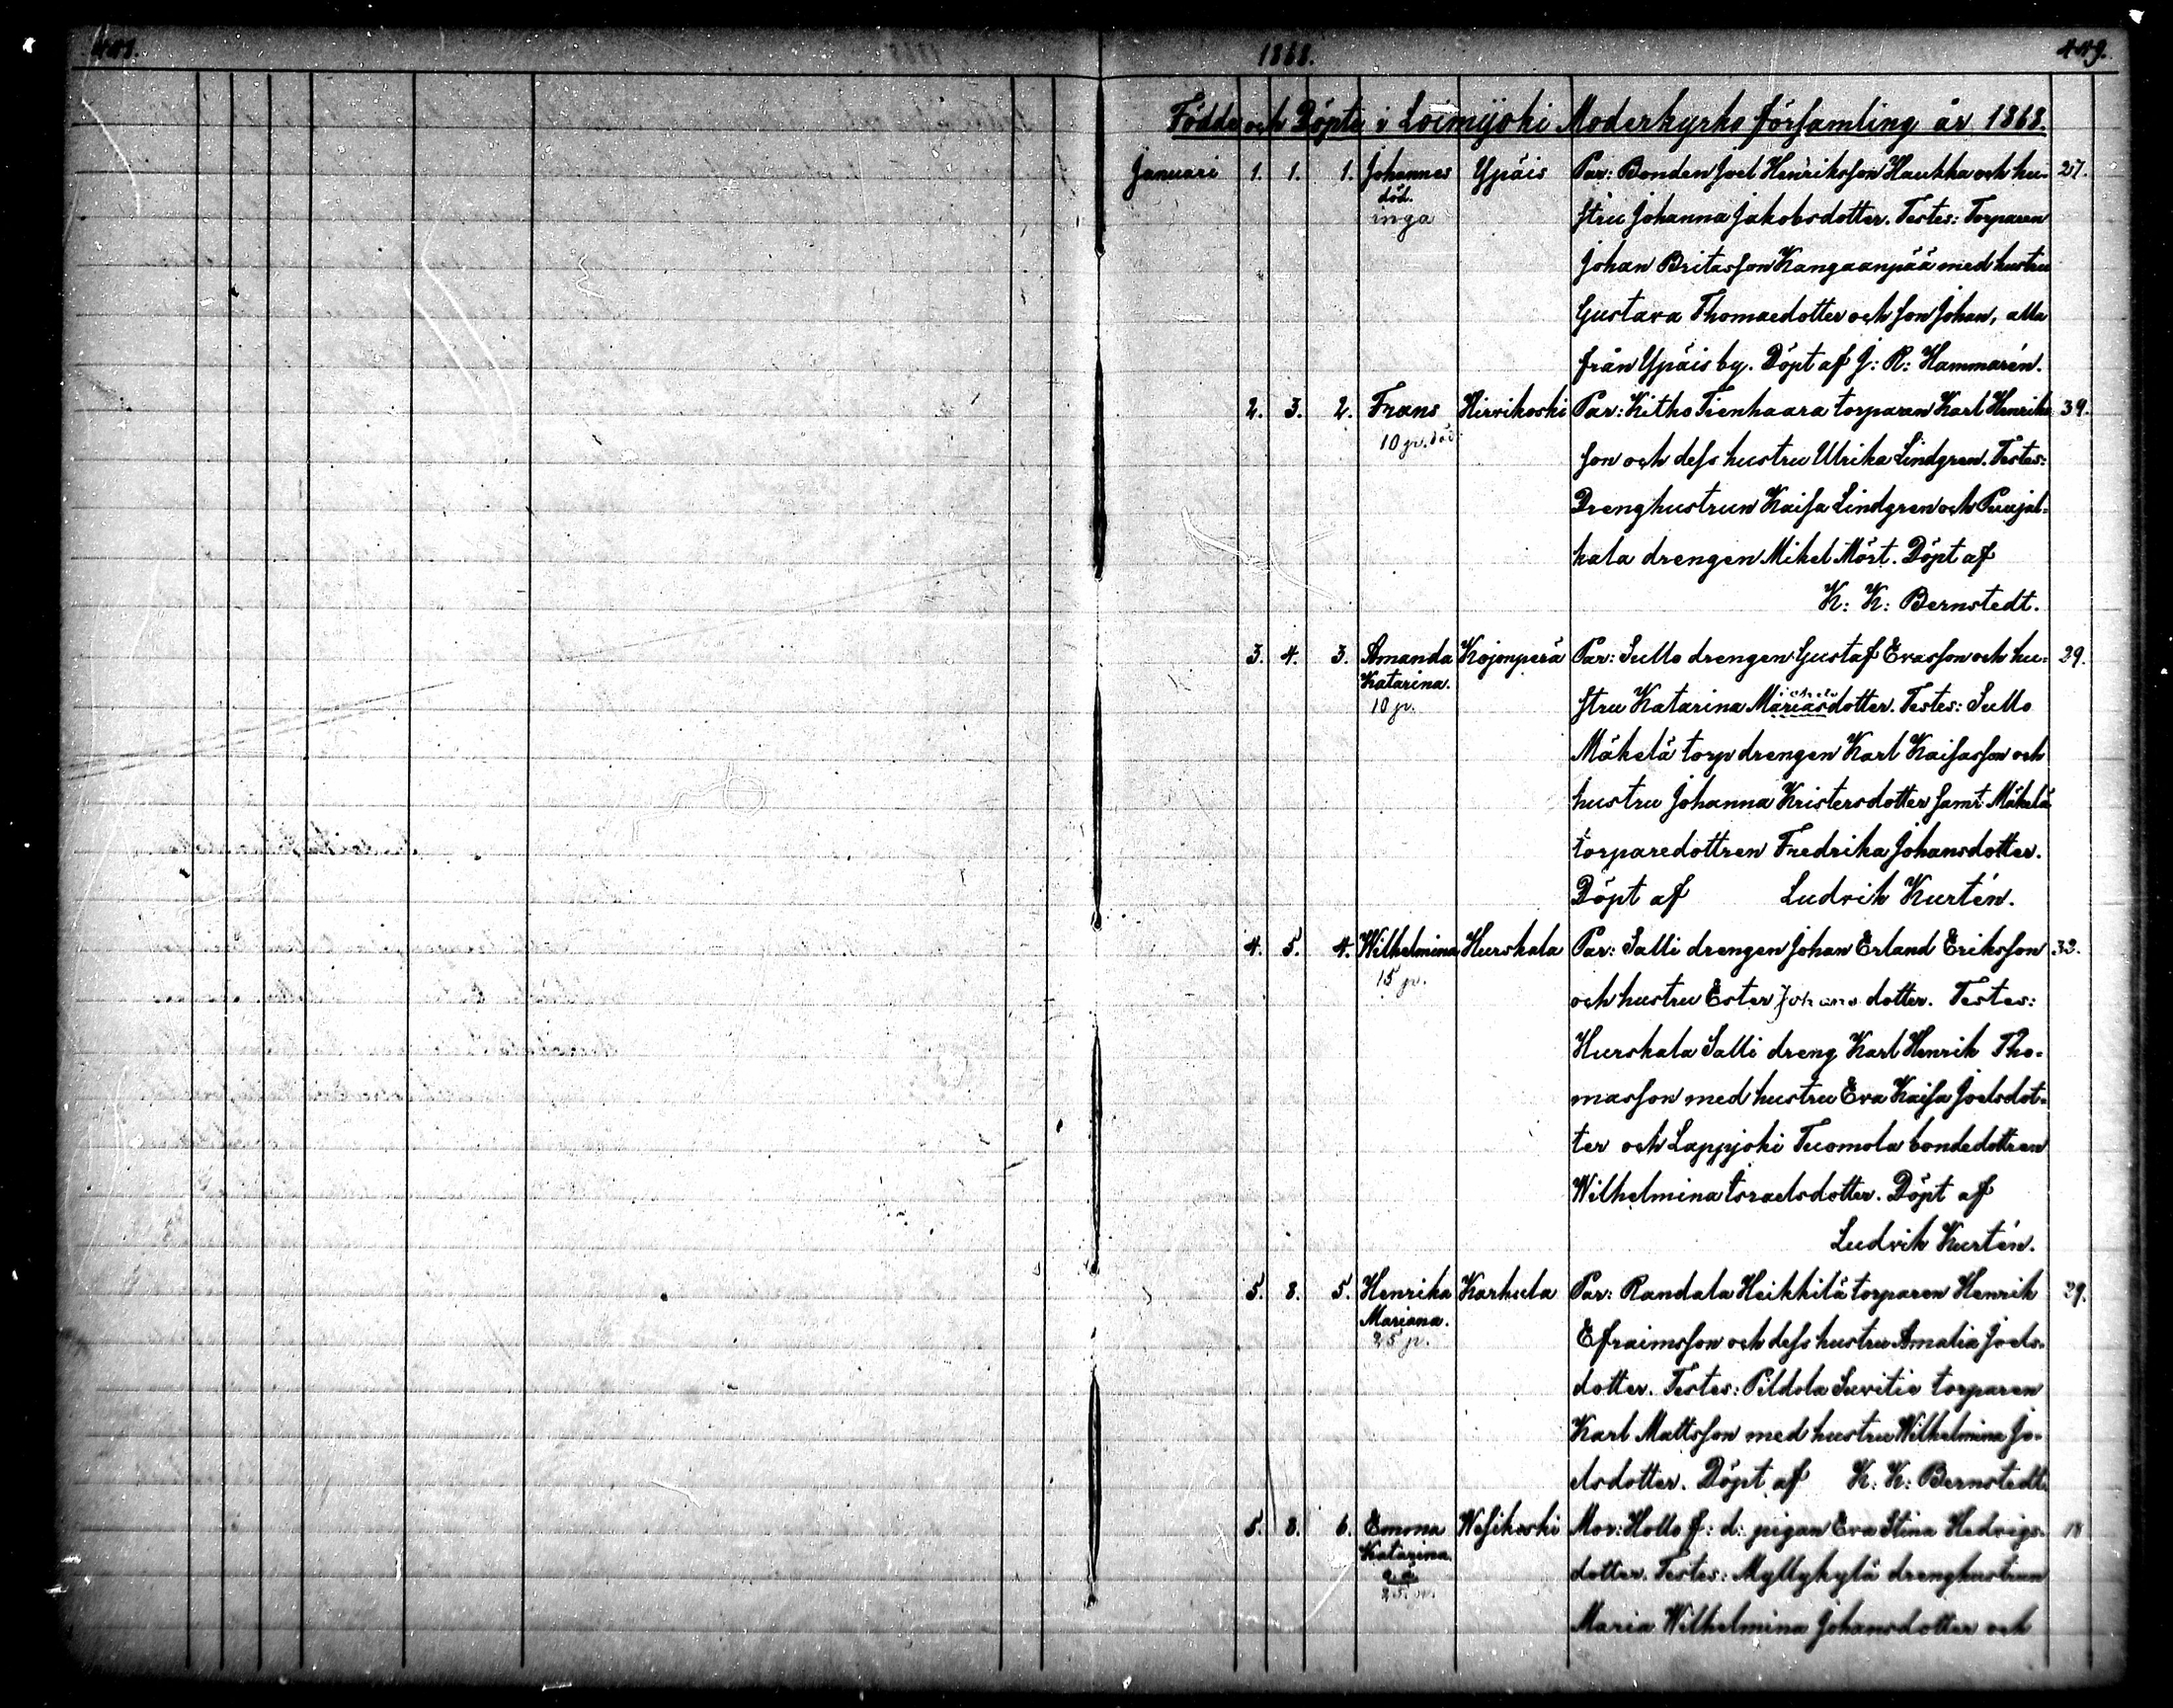 1868. 449.
Födde och Döpte i Loimijoki Moderkyrko församling år 1868.
Januari 1. 1. 1. Johannes Ypäis Par: Bonden Joel Henriksson Haukka och hu- 27.
död. stru Johanna Jakobsdotter. Testes: Torparen
inga
Johan Britasson Kangaanpää med hustru
Gustava Thomasdotter och son Johan, alla
från Ypäis by. Döpt af J: R: Hammarén.
2. 3. 2. Frans Hirvikoski Par: Kitko Tienhaara torparen Karl Henriks 39.
10 p. död. son och dess hustru Ulrika Lindgren. Testes:
Drenghustrun Kaisa Lindgren och Puujal-
kala drengen Mikel Mört. Döpt af
K: K: Bernstedt.
3. 4. 3. Amanda Kojonperä Par: Sullo drengen Gustaf Evasson och hu- 29.
Katarina.
10 p. stru Katarina Mariasdotter. Testes: Sullo
Mäkelä torp drengen Karl Kaisasson och
hustru Johanna Kristersdotter samt Mäkelä
torparedottren Fredrika Johansdotter.
Döpt af Ludvik Kurtén.
4. 5. 4. Wilhelmina Hurskala Par: Salli drengen Johan Erland Eriksson 32.
15 p. och hustru Ester Johans dotter. Testes:
Hurskala Salli dreng Karl Henrik Tho-
masson med hustru Eva Kaisa Joelsdot-
ter och Lappjoki Tuomola bondedottren
Wilhelmina Israelsdotter. Döpt af
Ludvik Kurtén.
5. 8. 5. Henrika Karhula Par: Randala Heikkilä torparen Henrik 29.
Mariana.
25 p. Efraimsson och dess hustru Amalia Joels-
dotter. Testes: Pildola Suvitie torparen
Karl Mattsson med hustru Wilhelmina Jo-
elsdotter. Döpt af K: K: Bernstedt.
5. 8. 6. Emma Wesikoski Mor: Hollo f: d: pigan Eva Stina Hedvigs- 18
Katarina. dotter. Testes: Myllykylä drenghustrun
25 p.
Maria Wilhelmina Johansdotter och